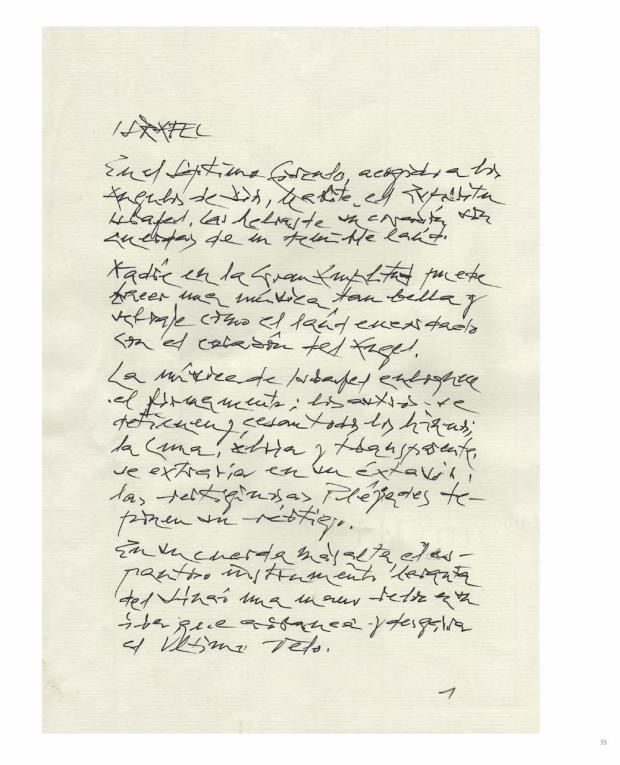 En el Séptimo Círculo, acogido a los
Ángulos de Dios, habita el Espíritu
Israfel. Las hebras de su corazón son
cuerdas de un temible laúd.
Nadie en la Gran Amplitud puede
hacer una música tan bella y
salvaje como el laúd encordado
con el corazón del Ángel.
La música de Israfel enloquece
el firmamento; los astros se
detienen y cesan todos los himnos;
la Luna, sobria y transparente,
se extravía en un éxtasis;
las vertiginosas Pléyades de-
tienen su vértigo.
En su cuerda más alta el es-
pantoso instrumento levanta
del una mano
que arranca y desgarra
el Último Velo.
1
35